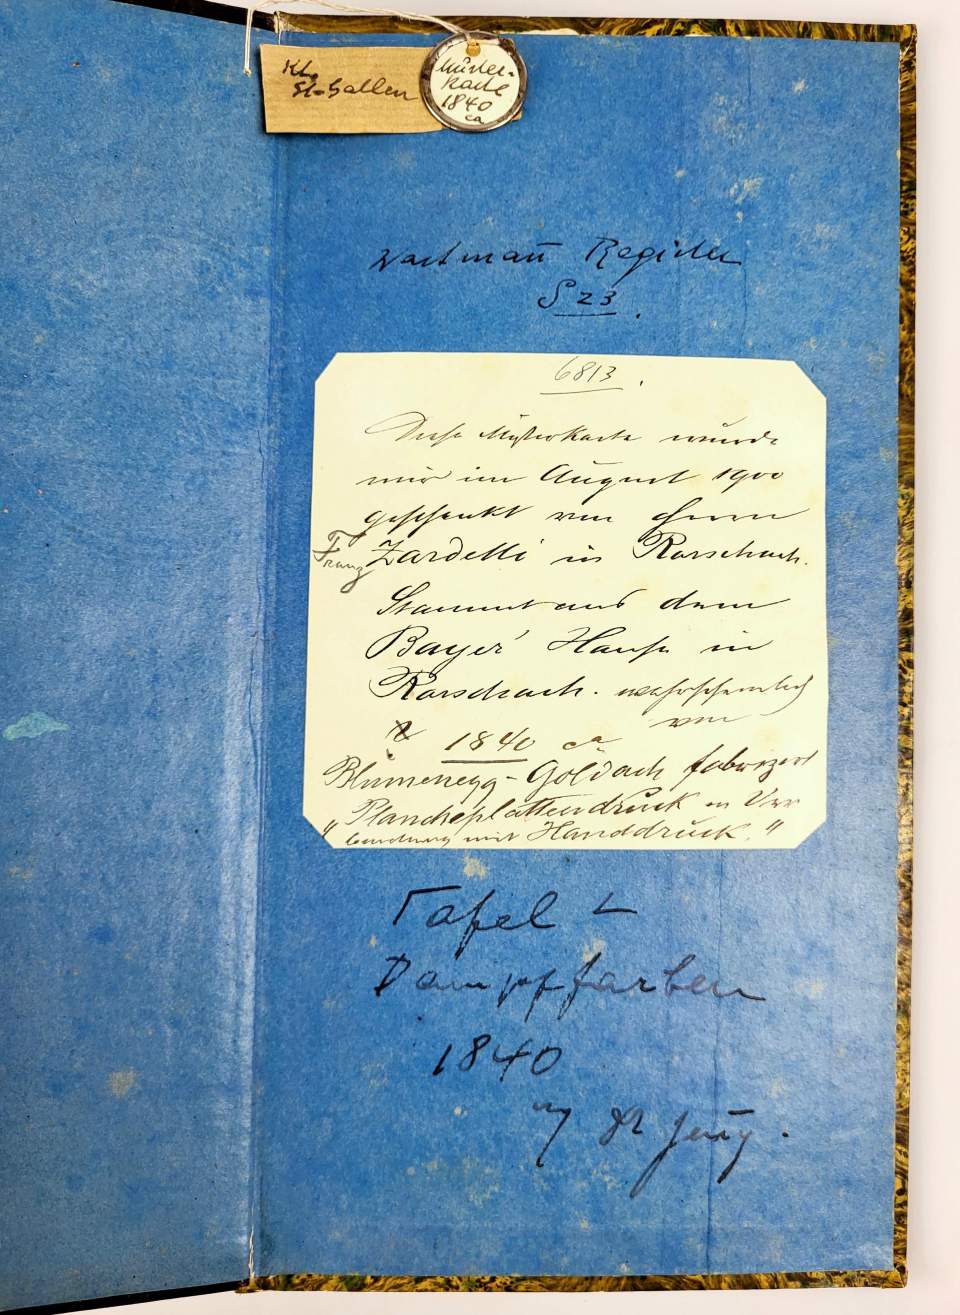 Kt.
St. Gallen
Muster-
karte
1840
ca
Wartmann Register
S 23.
6813.
Diese Musterkarte wurde
mir im August 1900
geschenkt von Herrn
Franz Zardetti in Rorschach.
Stammt aus dem
Bayer' Hause in
Rorschach. wahrscheinlich
von
1840 ca
Blumenegg-Goldach fabriziert
"Plancheplattendruck in Ver
bindung mit Handdruck."
Tafel
Dampffarben
1840